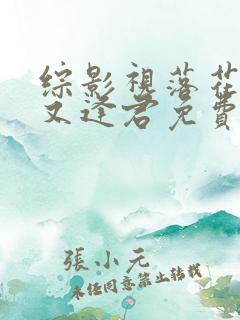 綜影視落花
又逢君免費
張小元
未经同意禁止转载